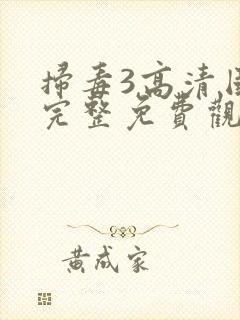 掃毒3高清
完整免費觀
黃成家